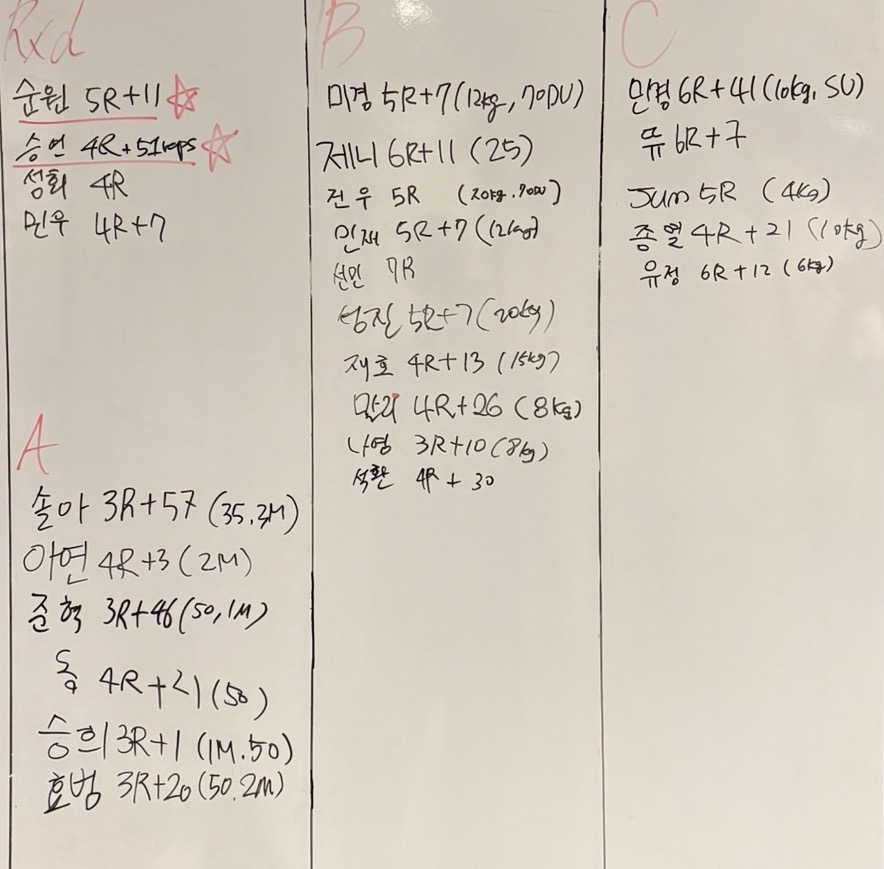 Rxd
순원 5R+11
승언 4R+51reps
성회 4R
민우 4R+7
A
솔아 3R+57 (35, 3M)
아연 4R+3 (2M)
준혁 3R+46 (50, 1M)
동 4R+21 (50)
승희 3R+1 (1M. 50)
효범 3R+20 (50. 2M)
B
미경 5R+7 (12kg, 70DU)
제니 6R+11 (25)
건우 5R (20kg. 70DU)
민재 5R+7 (12kg)
선민 7R
성진 5R+7 (20kg)
재호 4R+13 (15kg)
말리 4R+26 (8kg)
나영 3R+10 (8kg)
석환 4R + 30
C
민경 6R+41 (10kg, SU)
뜌 6R+7
Jum 5R (4kg)
종열 4R+21 (10kg)
유정 6R+12 (6kg)